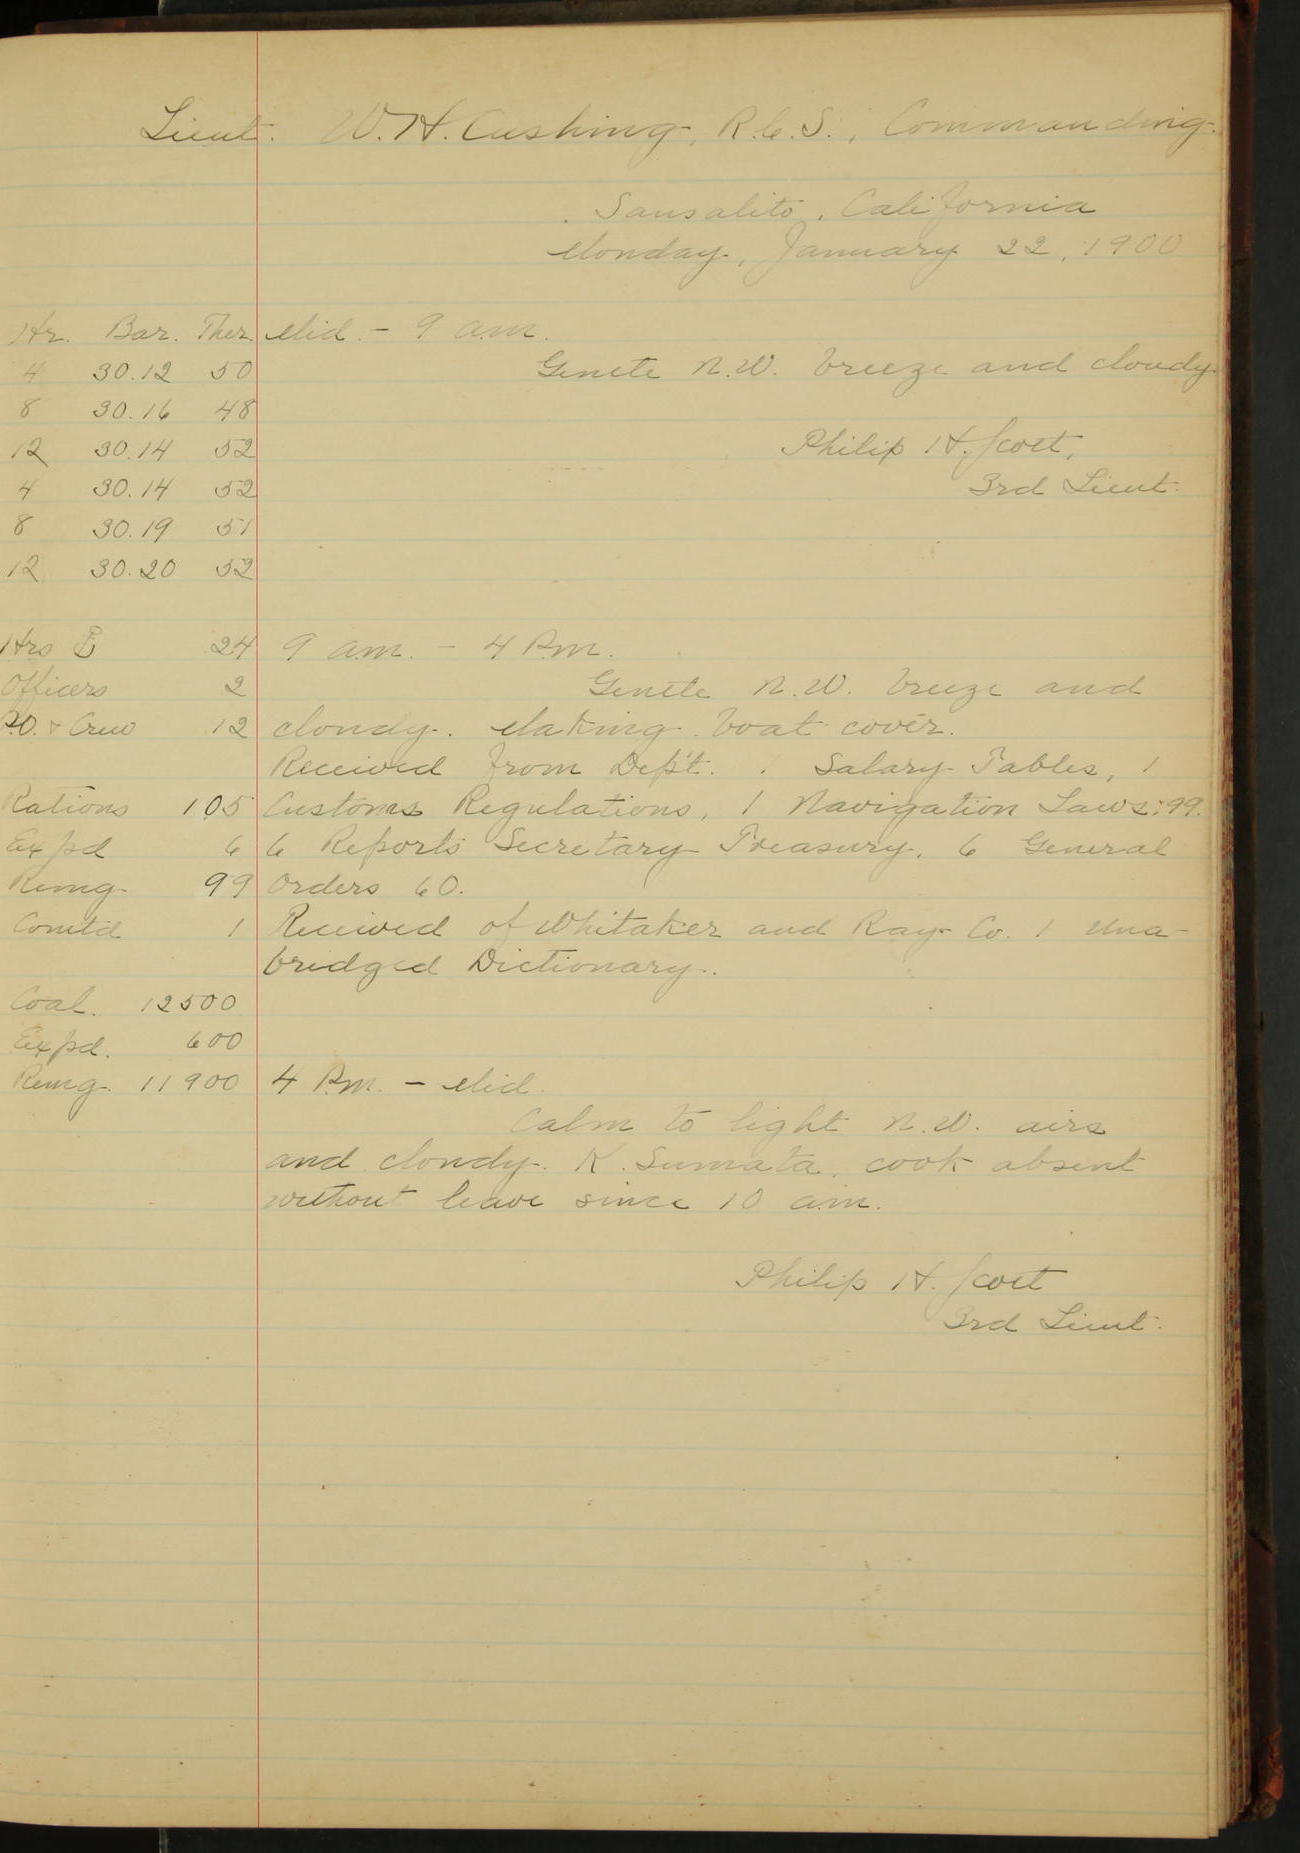 Lieut. W. H. Cushing, R.C.S., Commanding.
Sausalito, California
Monday, January 22, 1900
Hr. Bar. Ther. Mid. - 9 a.m.
4 30.12 50 Gentle N.W. breeze and cloudy.
8 30.16 48
12 30.14 52 Philip H. Scott,
4 30.14 52 3rd Lieut.
8 30.19 51
12 30.20 52
Hrs ⚓ 24 9 a.m. - 4 P.m.
Officers 2 Gentle N.W. breeze and
P.O. & Crew 12 cloudy. Making boat cover.
Received from Dept. 1 Salary Tables, 1
Rations 105 Customs Regulations, 1 Navigation Laws: 99.
Expd 6 6 Reports Secretary Treasury, 6 General
Remg. 99 Orders 60.
Comtd 1 Received of Whitaker and Ray Co. 1 Una-
bridged Dictionary.
Coal. 12500
Expd. 600
Remg. 11900 4 P.m. - Mid.
Calm to light N.W. airs
and cloudy. K. Sumata, cook absent
without leave since 10 a.m.
Philip H. Scott
3rd Lieut.